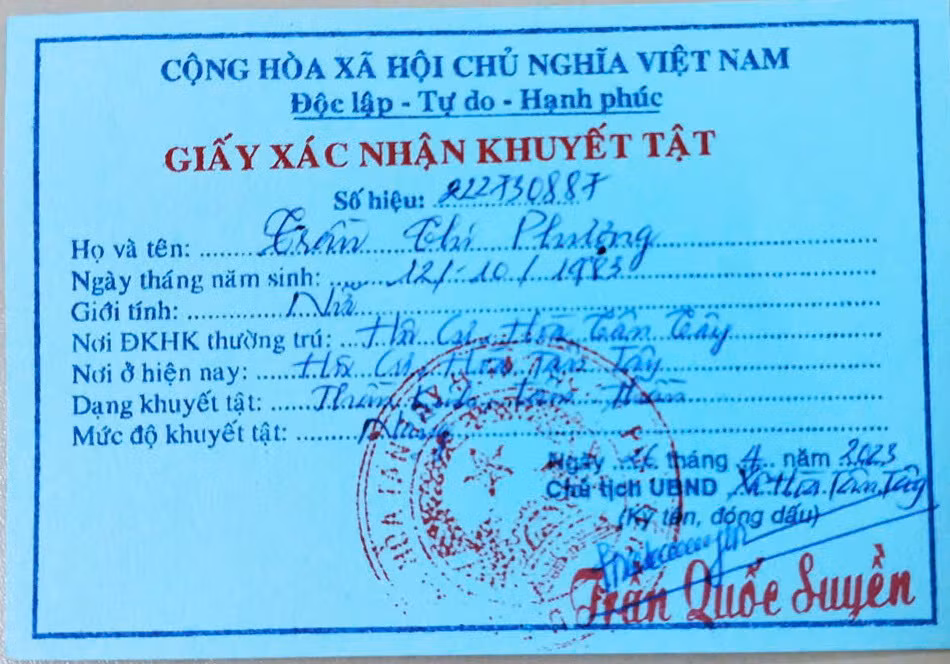 CỘNG HÒA XÃ HỘI CHỦ NGHĨA VIỆT NAM
Độc lập - Tự do - Hạnh phúc
GIẤY XÁC NHẬN KHUYẾT TẬT
Số hiệu: 222730887
Họ và tên: Trần Thị Phượng
Ngày tháng năm sinh: 12/10/1983
Giới tính: Nữ
Nơi ĐKHK thường trú: Hòa Tân Tây
Nơi ở hiện nay: Hòa Tân Tây
Dạng khuyết tật: Thần kinh, tâm thần
Mức độ khuyết tật: Nặng
Ngày 26 tháng 4 năm 2023
Chủ tịch UBND xã Hòa Tân Tây
(Ký tên, đóng dấu)
Trần Quốc Suyền